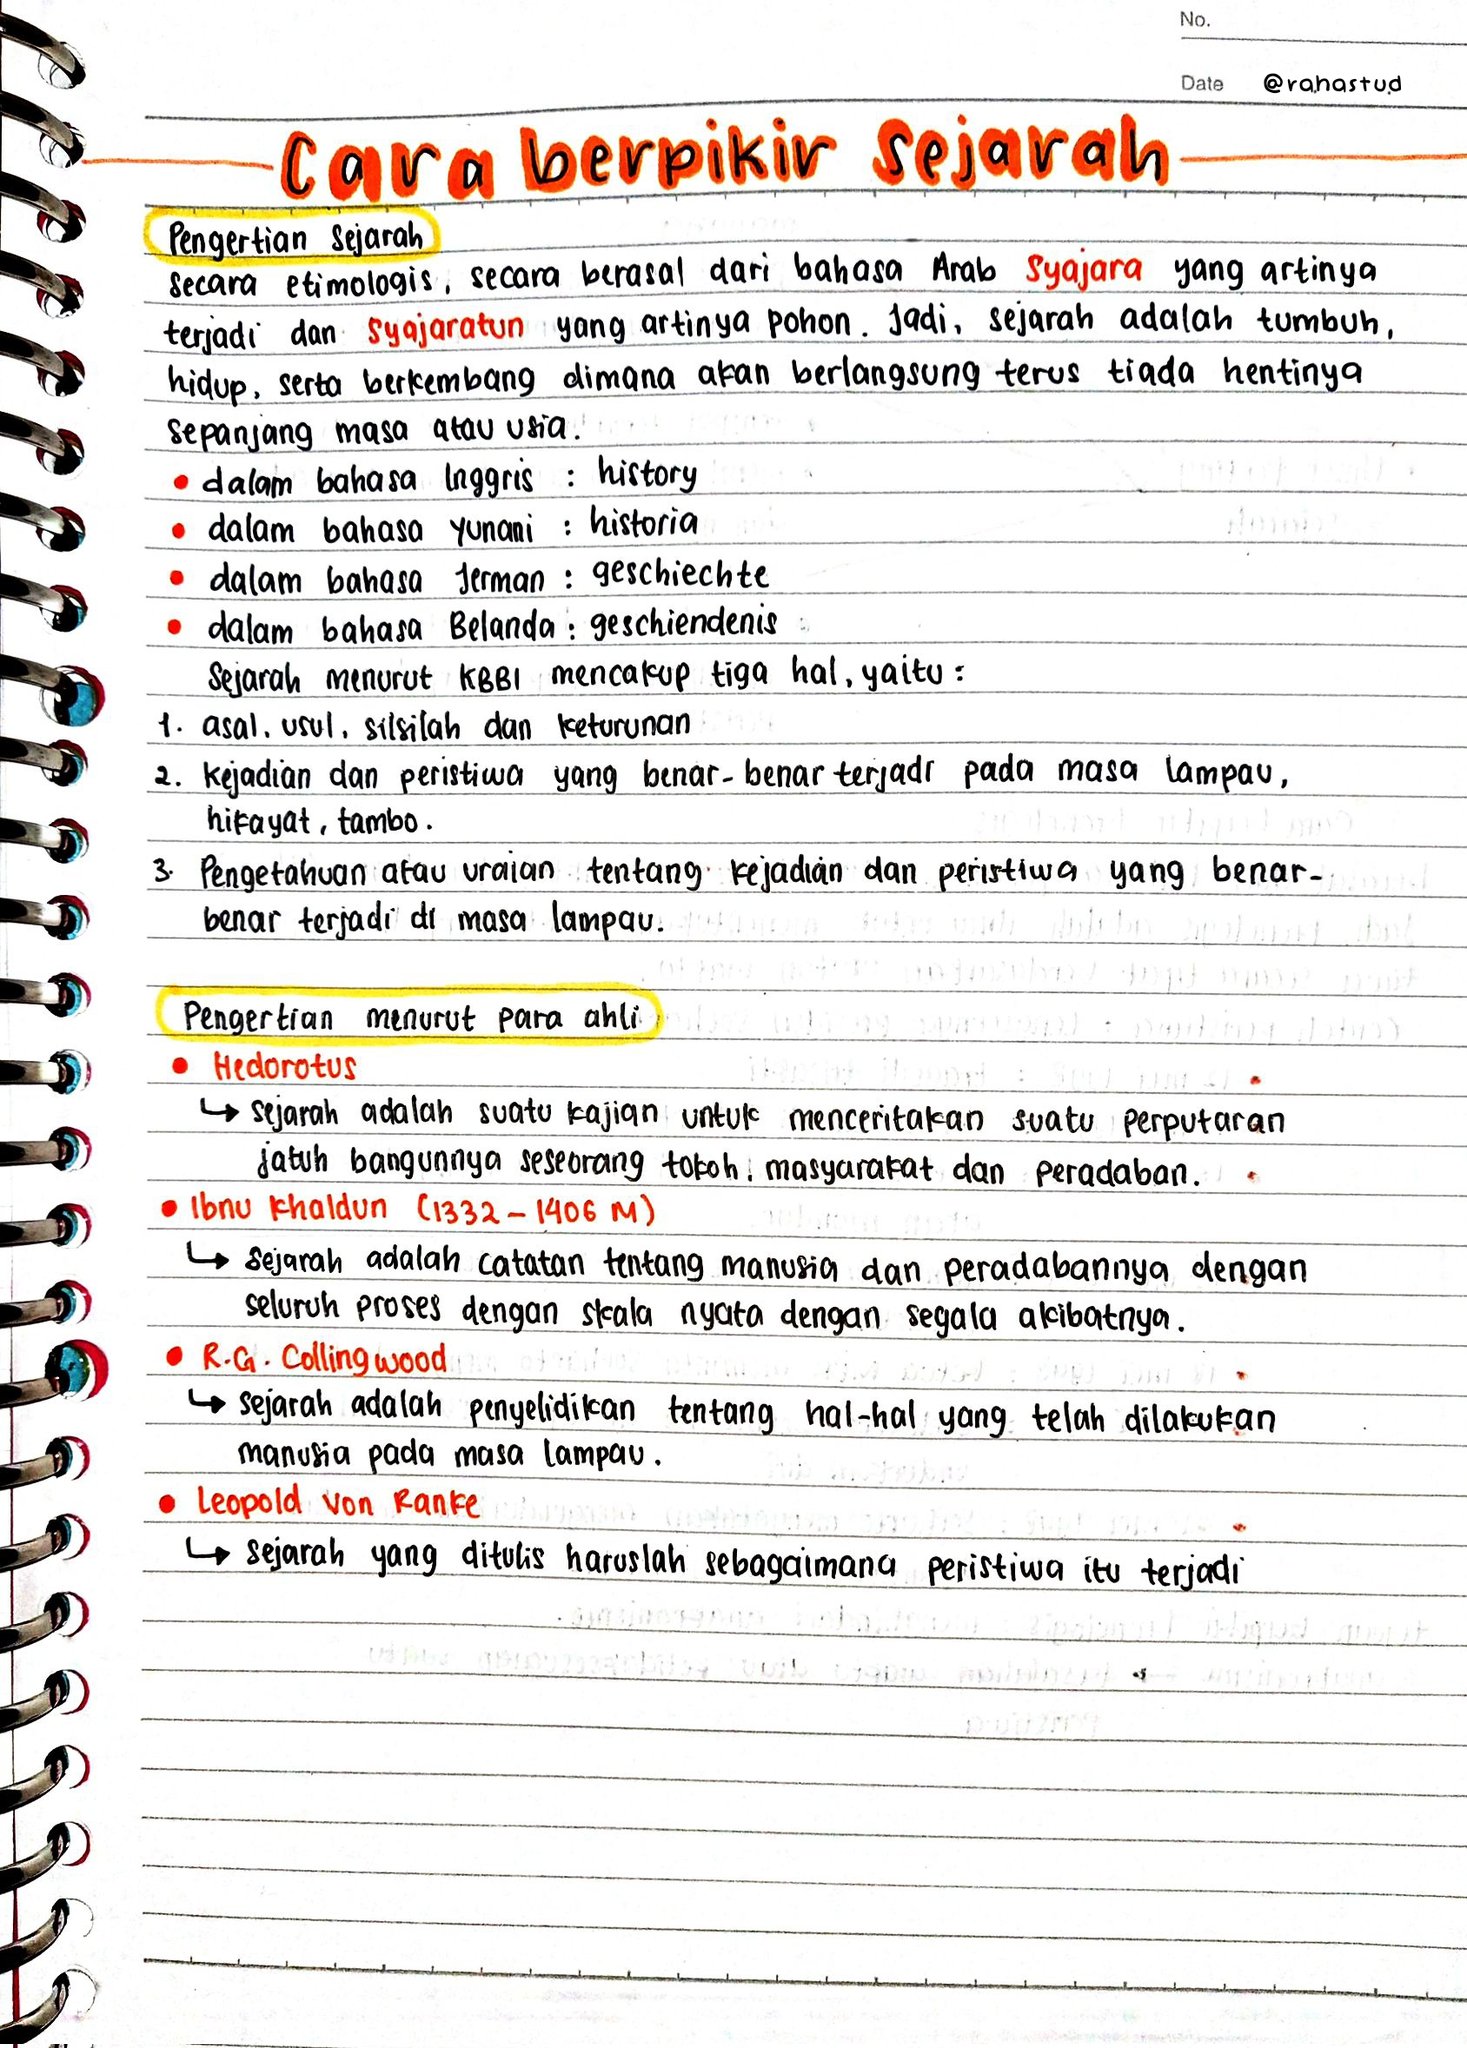 No.
Date @rahastud
Cara berpikir Sejarah
Pengertian Sejarah
Secara etimologis, secara berasal dari bahasa Arab Syajara yang artinya
terjadi dan Syajaratun yang artinya pohon. Jadi, sejarah adalah tumbuh,
hidup, serta berkembang dimana akan berlangsung terus tiada hentinya
sepanjang masa atau usia.
• dalam bahasa Inggris : history
• dalam bahasa Yunani : historia
• dalam bahasa Jerman : geschiechte
• dalam bahasa Belanda : geschiendenis
Sejarah menurut KBBI mencakup tiga hal, yaitu :
1. asal, usul, silsilah dan keturunan
2. kejadian dan peristiwa yang benar-benar terjadi pada masa lampau,
hikayat, tambo.
3. Pengetahuan atau uraian tentang kejadian dan peristiwa yang benar-
benar terjadi di masa lampau.
Pengertian menurut para ahli
• Hedorotus
↳ sejarah adalah suatu kajian untuk menceritakan suatu perputaran
jatuh bangunnya seseorang tokoh, masyarakat dan peradaban.
• Ibnu Khaldun (1332 - 1406 M)
↳ Sejarah adalah catatan tentang manusia dan peradabannya dengan
seluruh proses dengan skala nyata dengan segala akibatnya.
• R.G. Collingwood
↳ sejarah adalah penyelidikan tentang hal-hal yang telah dilakukan
manusia pada masa lampau.
• Leopold Von Ranke
↳ sejarah yang ditulis haruslah sebagaimana peristiwa itu terjadi